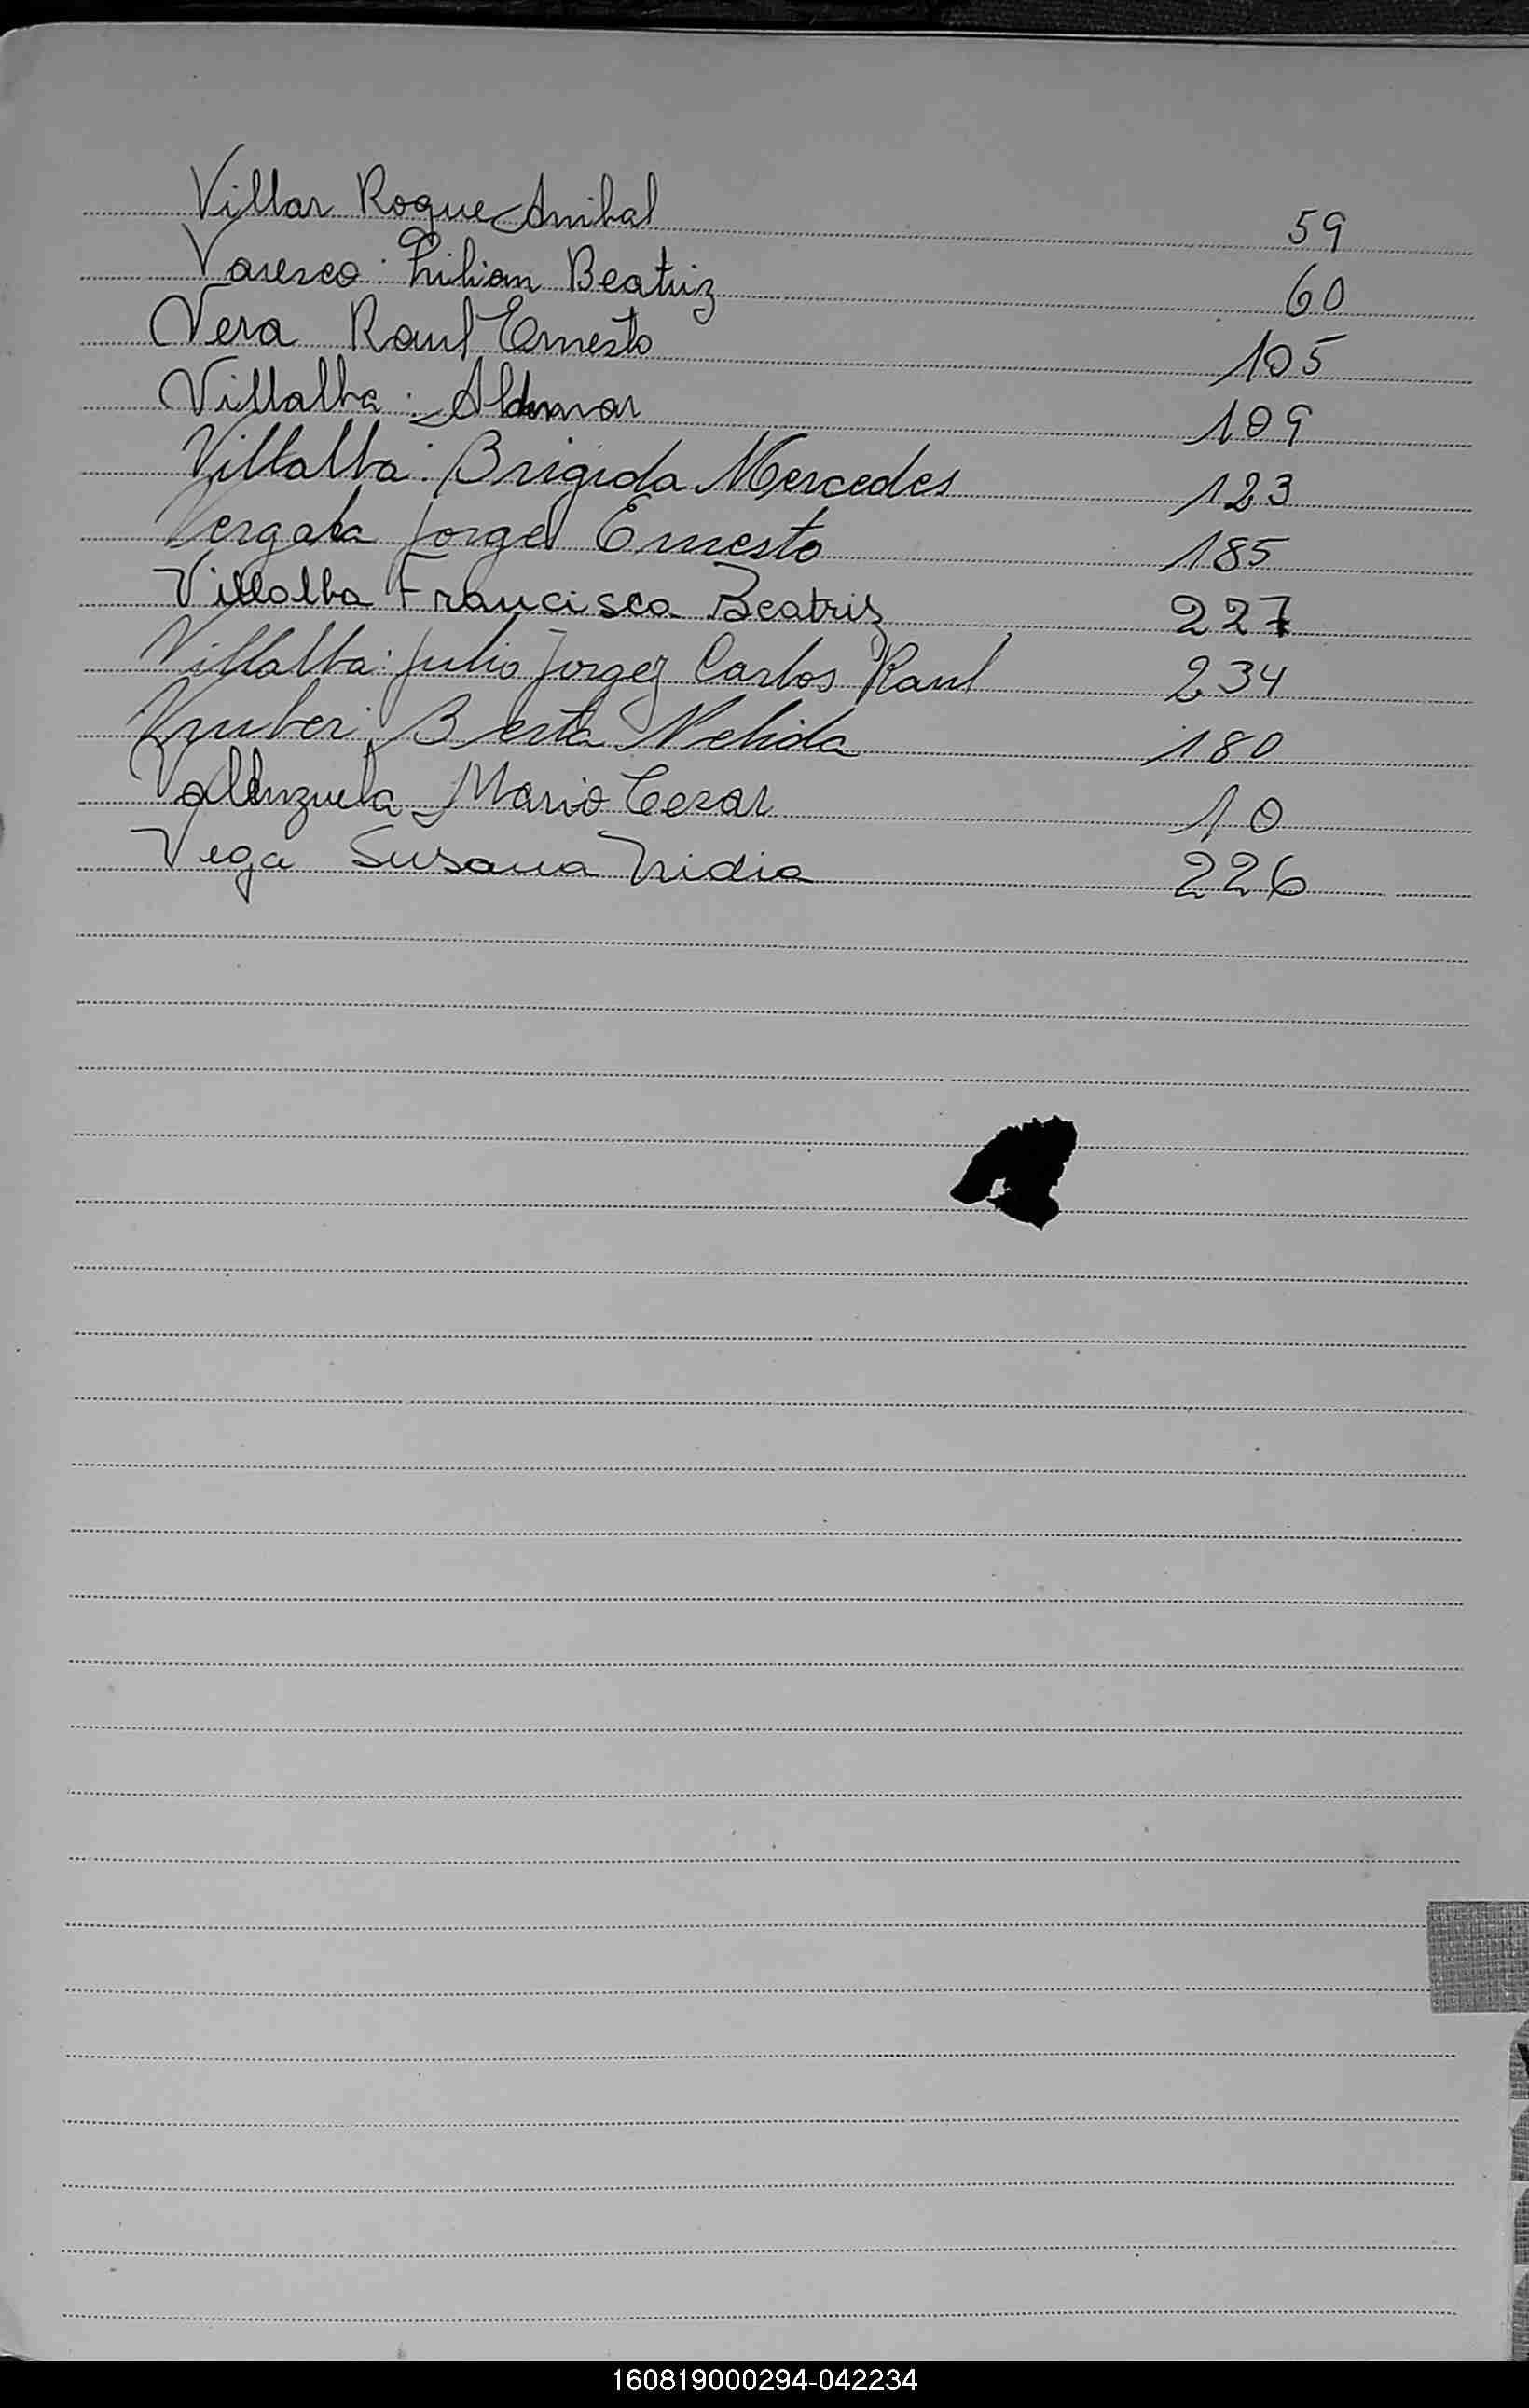 Villar Roque Anibal 59
Varesco: Lilian Beatriz 60
Vera Raul Ernesto 105
Villalba: Aldemar 109
Villalba: Brigida Mercedes 123
Vergara Jorge Ernesto 185
Villalba Francisca Beatriz 227
Villalba: Julio Jorge y Carlos Raul 234
Berta Nelida 180
Valenzuela Mario Cezar 10
Vega Susana Nidia 226
160819000294-042234